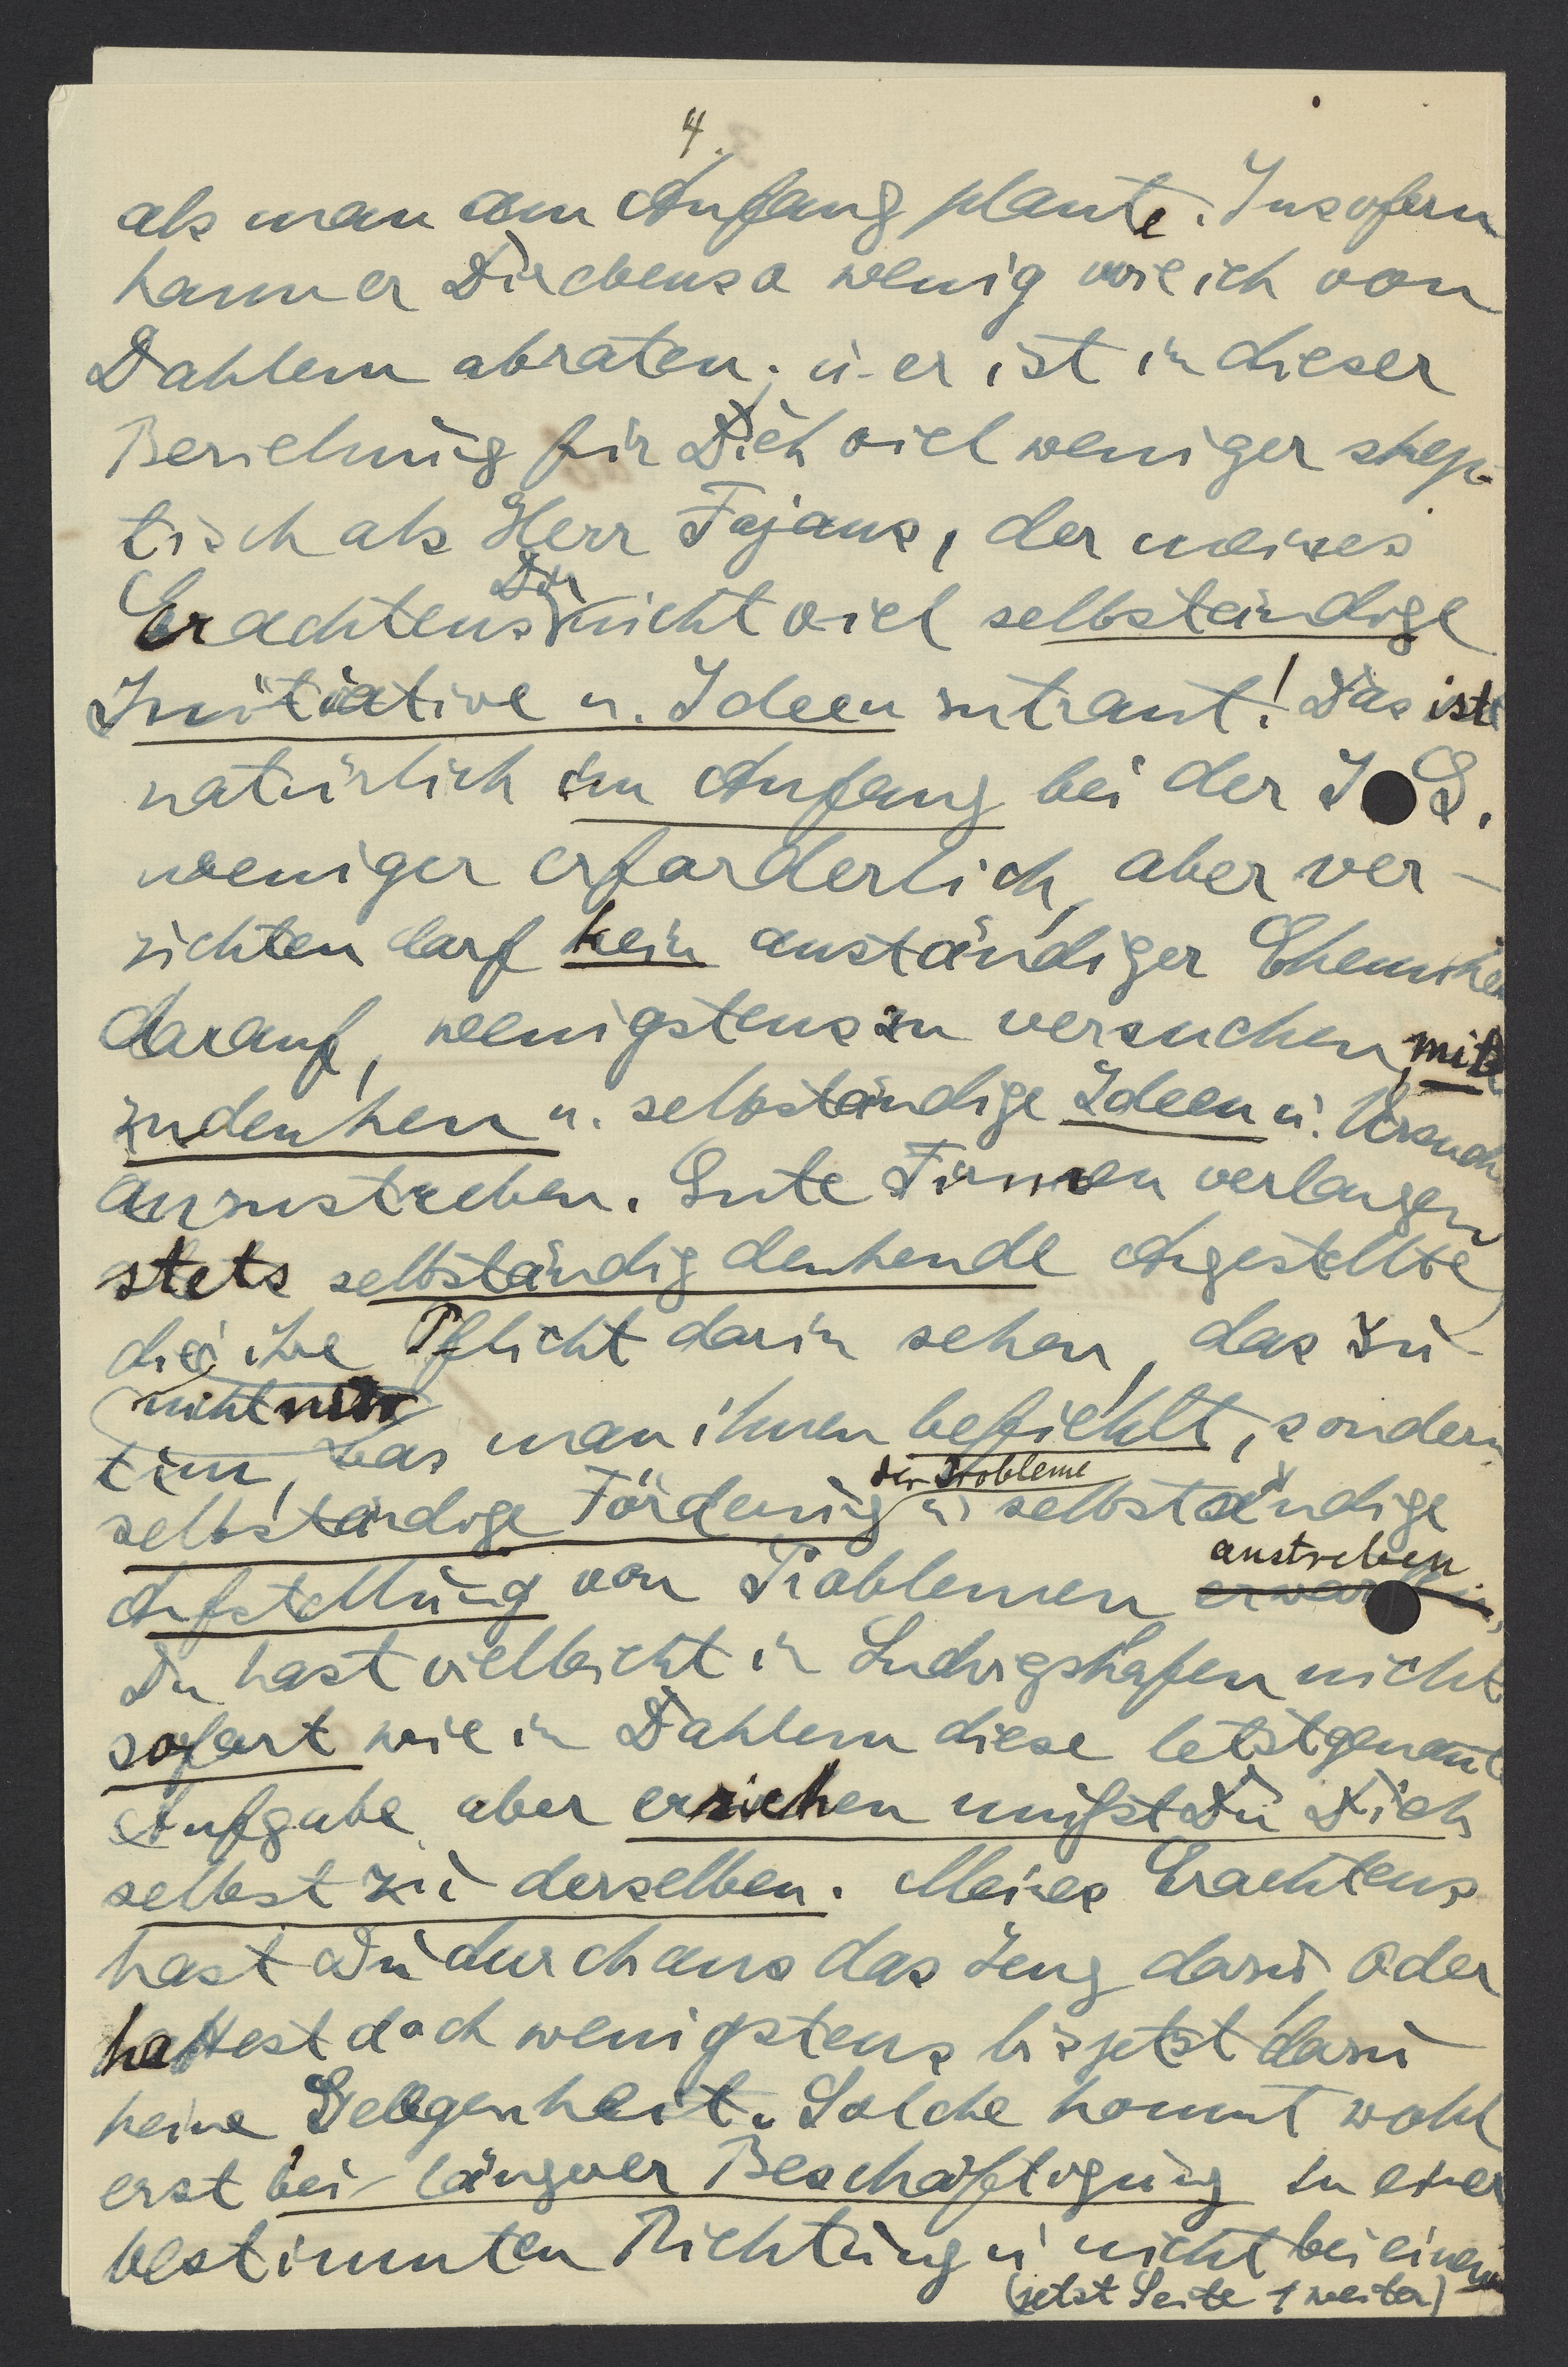 4.
als man am Anfang plante. Insofern
kann er Dir ebenso wenig wie ich von
Dahlem abraten; u. er ist in dieser
Beziehung für Dich viel weniger skep-
tisch als Herr Fajans, der meines
Erachtens Dir nicht viel selbständige
Initiative u. Ideen zutraut! Das ist
natürlich im Anfang bei der I.G.
weniger erforderlich, aber ver-
zichten darf kein anständiger Chemiker
darauf, wenigstens zu versuchen, mit
zudenken u. selbständige Ideen u. Versuche
anzustreben. Gute Firmen verlangen
stets selbständig denkende Angestellte,
die ihre Pflicht darin sehen, das zu
nicht nur
tun, was man ihnen befiehlt, sondern
der Probleme
selbständige Förderung u. selbständige
anstreben
Aufstellung von Problemen
Du hast vielleicht in Ludwigshafen nicht
sofort wie in Dahlem diese letztgenannte
Aufgabe, aber erziehen mußt Du Dich
selbst zu derselben. Meines Erachtens
hast Du durchaus das Zeug dazu, oder
hattest doch wenigstens bis jetzt dazu
keine Gelegenheit. Solche kommt wohl
erst bei längerer Beschäftigung in einer
bestimmten Richtung u. nicht bei einem
(jetzt Seite 1 weiter)